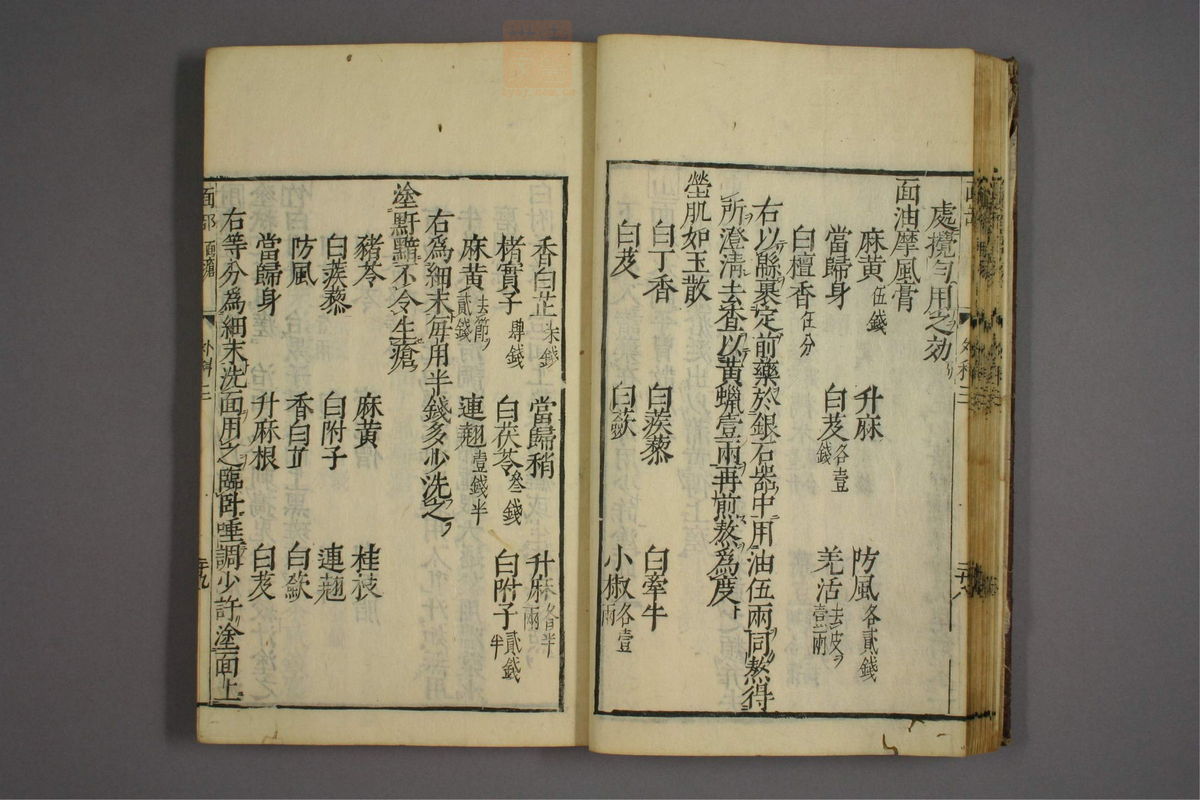 處攪勻用之効
面油摩風膏
麻黃伍錢 升麻 防風各貳錢
當歸身 白芨各壹錢 羌活去皮壹兩
白檀香伍分
右以緜裹定前藥於銀石器中用油伍兩同熬得
所澄清去查以黃蠟壹兩再煎熬爲度
瑩肌如玉散
白丁香 白蒺藜 白牽牛
白芨 白蘞 小椒各壹兩
香白芷柒錢 當歸稍 升麻各半兩
楮實子肆錢 白茯苓叄錢 白附子貳錢半
麻黃去節貳錢 連翹壹錢半
右爲細末每用半錢多少洗之
塗䵟䵳不冷生瘡
豬苓 麻黃 桂枝
白蒺藜 白附子 連翹
防風 香白芷 白蘞
當歸身 升麻根 白芨
右等分爲細末洗面用之臨臥唾調少許塗面上
面部 外科二